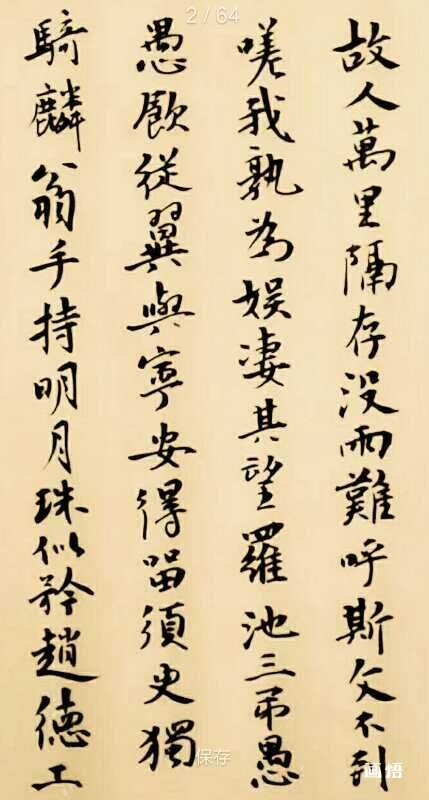 2 / 64
故人萬里隔存沒兩難呼斯文不到
嗟我孰為娱凄其望羅池三弔愚
愚願從翼與寧安得留須臾獨
騎麟翁手持明月珠似矜趙德工
保存
画悟